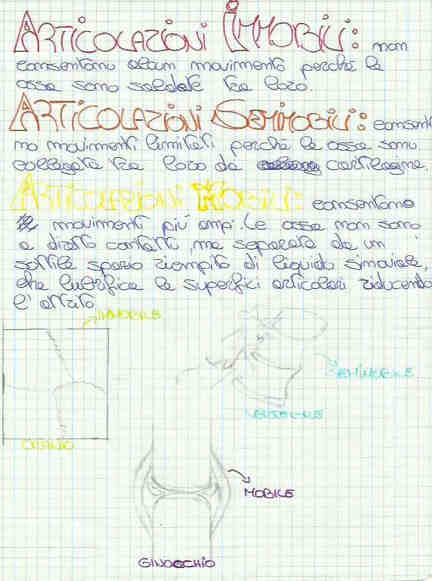 ARTICOLAZIONI IMMOBILI: non
consentono alcun movimento perché le
ossa sono saldate tra loro.
ARTICOLAZIONI SEMIMOBILI: consento
no movimenti limitati perché le ossa sono
collegate tra loro da cartilagine.
ARTICOLAZIONI MOBILI: consentono
movimenti più ampi. Le ossa non sono
a diretto contatto, ma separate da un
sottile spazio riempito di liquido sinoviale,
che lubrifica le superfici articolari riducendo
l'attrito
IMMOBILE
SEMIMOBILE
VERTEBRE
CRANIO
MOBILE
GINOCCHIO